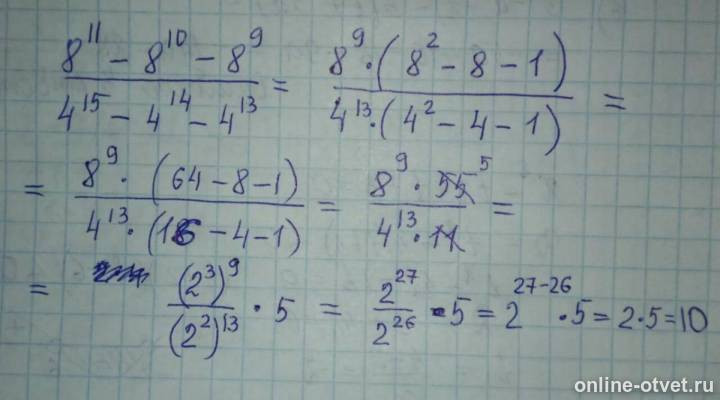 (8^11 − 8^10 − 8^9)/(4^15 − 4^14 − 4^13) = (8^9 · (8^2 − 8 − 1))/(4^13 · (4^2 − 4 − 1)) =
= (8^9 · (64 − 8 − 1))/(4^13 · (16 − 4 − 1)) = (8^9 · 55 5)/(4^13 · 11) =
= (2^3)^9/(2^2)^13 · 5 = 2^27/2^26 · 5 = 2^(27−26) · 5 = 2 · 5 = 10
online-otvet.ru